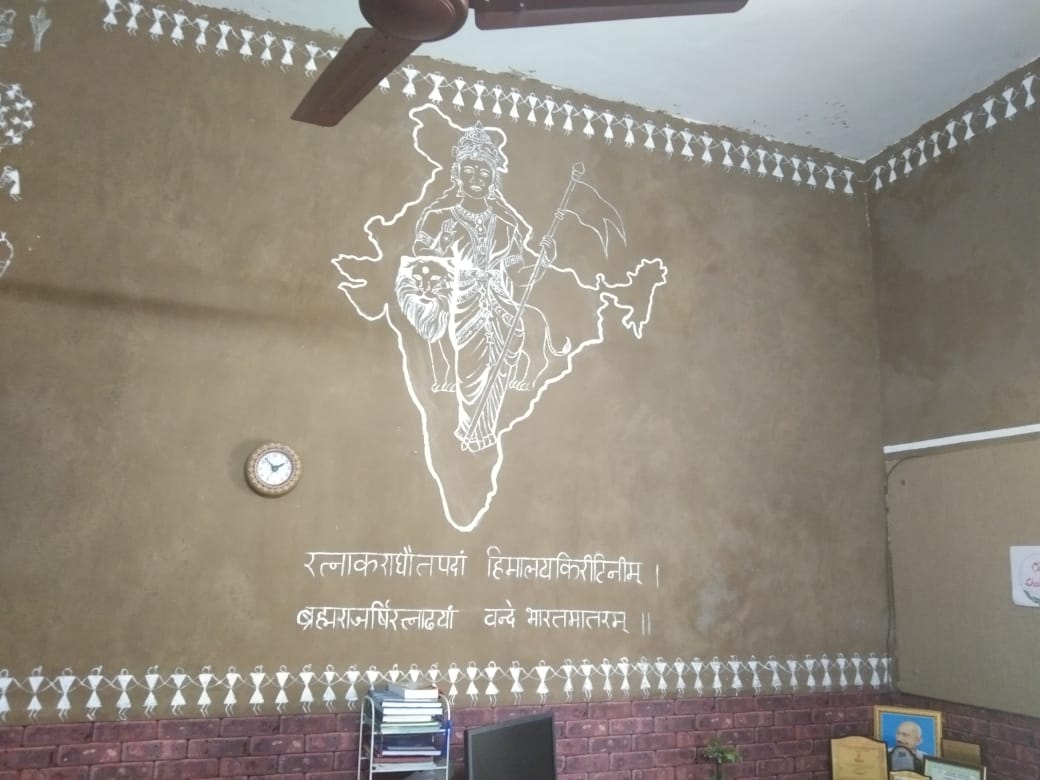 रत्नाकराधौतपदां हिमालयकिरीटिनीम् ।
ब्रह्मराजर्षिरत्नाढ्यां वन्दे भारतमातरम् ॥